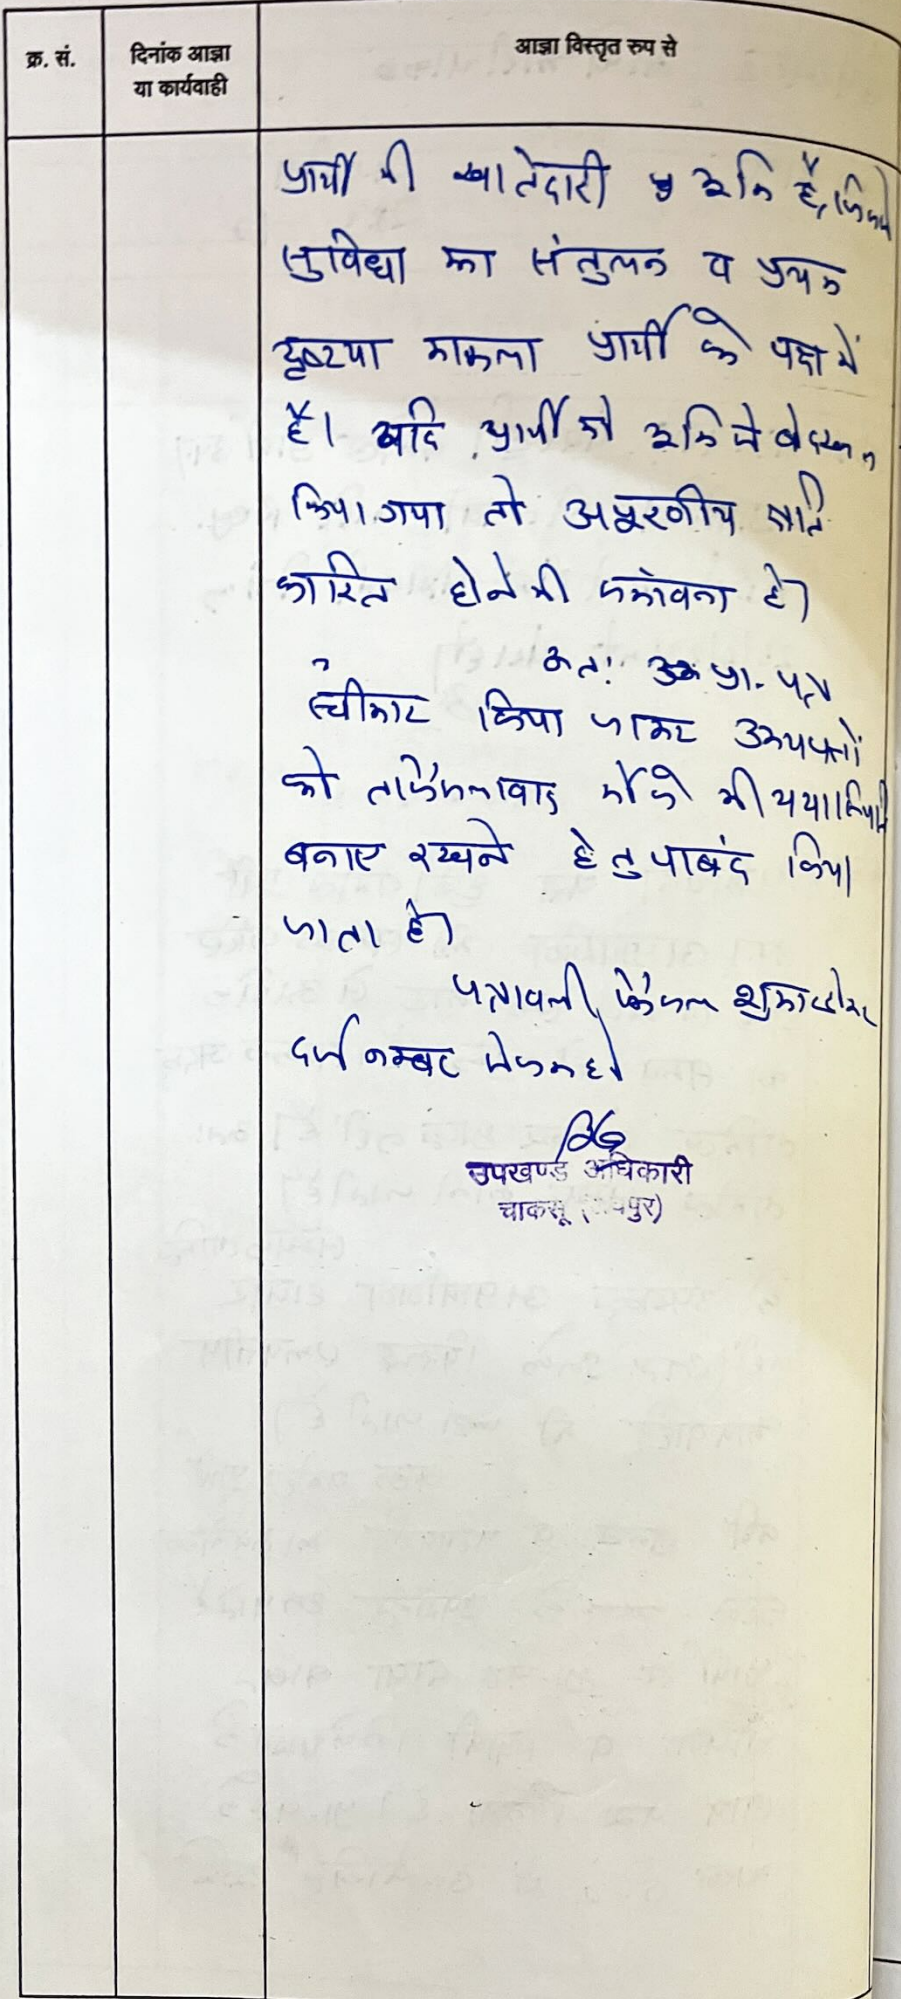 क्र. सं.
दिनांक आज्ञा
या कार्यवाही
आज्ञा विस्तृत रुप से
प्रार्थी की खातेदारी भूमि है, जिससे
सुविधा का संतुलन व प्रथम
दृष्टया मामला प्रार्थी के पक्ष में
है। यदि प्रार्थी को भूमि से बेदखल
किया गया तो अपूरणीय क्षति
कारित होने की संभावना है।
अतः उक्त प्रा. पत्र
स्वीकार किया जाकर उभयपक्षों
को ताफैसलावाद मौके की यथास्थिति
बनाए रखने हेतु पाबंद किया
जाता है।
पत्रावली फैसल शुमार होकर
दर्ज नम्बर से कम हो।
उपखण्ड अधिकारी
चाकसू (जयपुर)